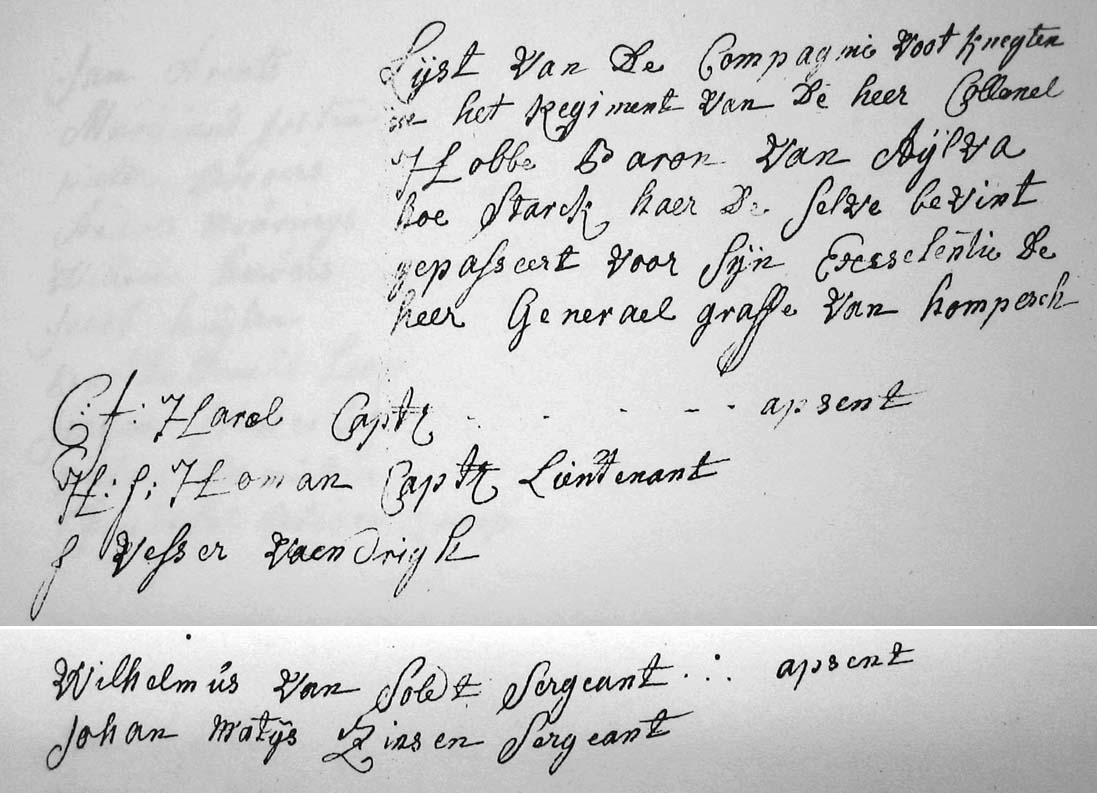 Lijst Van De Compagnie Voot knegten
het Regiment Van De heer Collonel
Hobbe Baron Van Aÿlva
hoe Starck haer De selve bevint
gepasseert voor sijn Exsselentie De
heer Generael graffe Van hompesch
C: f: Harel Capt apsent
H: f: Homan Capt Lieutenant
f Vesser Vaendrigh
Wilhelmus Van Soldt Sergeant apsent
Johan Matÿs Rinsen Sergeant